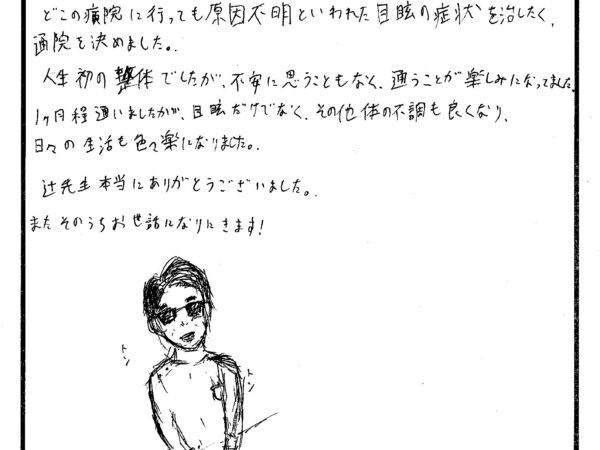 どこの病院に行っても原因不明といわれた目眩の症状を治したく、
通院を決めました。
人生初の整体でしたが、不安に思うこともなく、通うことが楽しみになってました。
1ヶ月程通いましたがが、目眩だけでなく、その他体の不調も良くなり、
日々の生活も色々楽になりました。
辻先生本当にありがとうございました。
またそのうちお世話になりにきます!
トン
トン